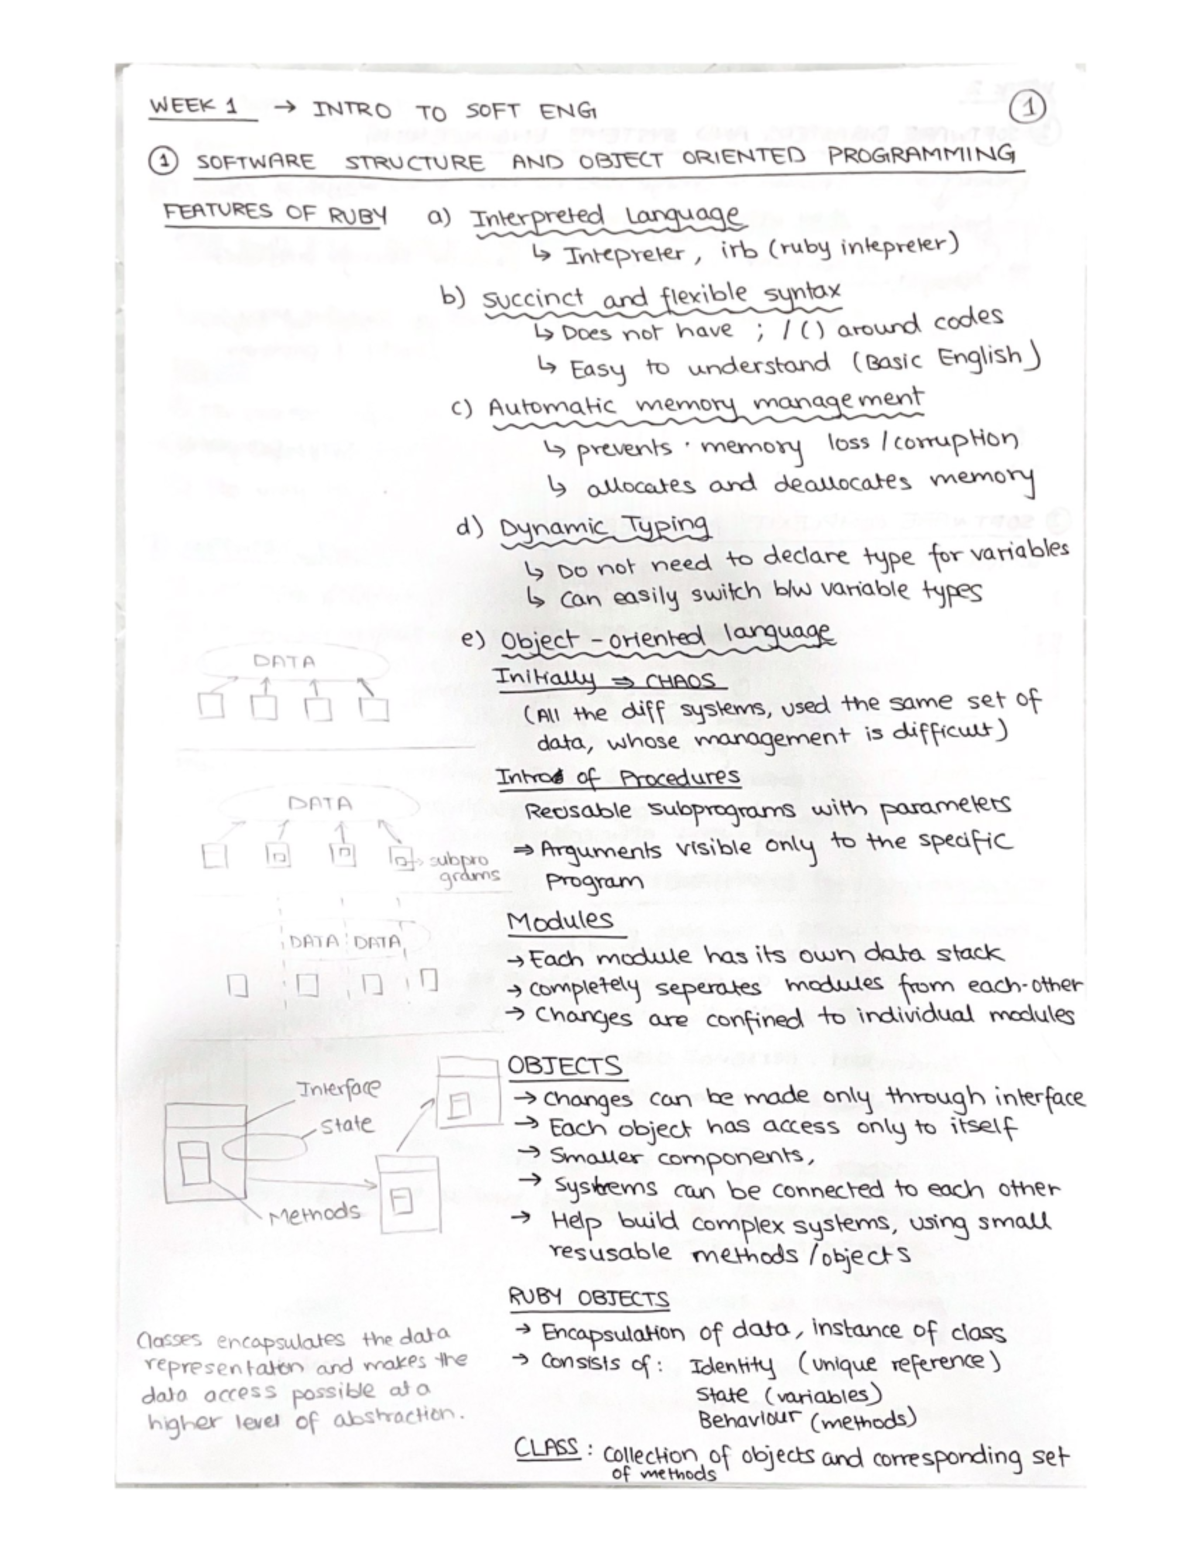 WEEK 1 → INTRO TO SOFT ENG
1
1 SOFTWARE STRUCTURE AND OBJECT ORIENTED PROGRAMMING
FEATURES OF RUBY a) Interpreted Language
↳ Intepreter, irb (ruby intepreter)
b) Succinct and flexible syntax
↳ Does not have ; / () around codes
↳ Easy to understand (Basic English)
c) Automatic memory management
↳ prevents memory loss / corruption
↳ allocates and deallocates memory
d) Dynamic Typing
↳ Do not need to declare type for variables
↳ Can easily switch b/w variable types
e) Object - oriented language
Initially ⇒ CHAOS
(All the diff systems, used the same set of
data, whose management is difficult)
DATA
Intro of Procedures
Reusable subprograms with parameters
⇒ Arguments visible only to the specific
Program
DATA
subpro
grams
Modules
→ Each module has its own data stack
→ completely seperates modules from each-other
→ Changes are confined to individual modules
DATA DATA
OBJECTS
→ changes can be made only through interface
→ Each object has access only to itself
→ Smaller components,
→ Systems can be connected to each other
→ Help build complex systems, using small
resusable methods / objects
Interface
State
Methods
RUBY OBJECTS
→ Encapsulation of data, instance of class
→ Consists of : Identity (unique reference)
State (variables)
Behaviour (methods)
Classes encapsulates the data
representation and makes the
data access possible at a
higher level of abstraction.
CLASS : collection of objects and corresponding set
of methods